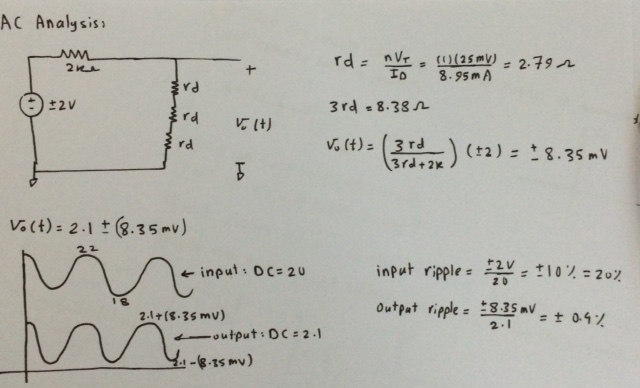 AC Analysis:
2k
±2V
rd
rd
rd
+
Vo(t)
-
rd = nVT/ID = (1)(25mV)/8.95mA = 2.79 Ω
3rd = 8.38 Ω
Vo(t) = (3rd/3rd+2k) (±2) = ± 8.35 mV
Vo(t) = 2.1 ± (8.35 mV)
22
← input: DC = 20
18
2.1+(8.35 mV)
← output: DC = 2.1
2.1-(8.35 mV)
input ripple = ±2V/20 = ±10% = 20%
output ripple = ±8.35 mV/2.1 = ± 0.4%